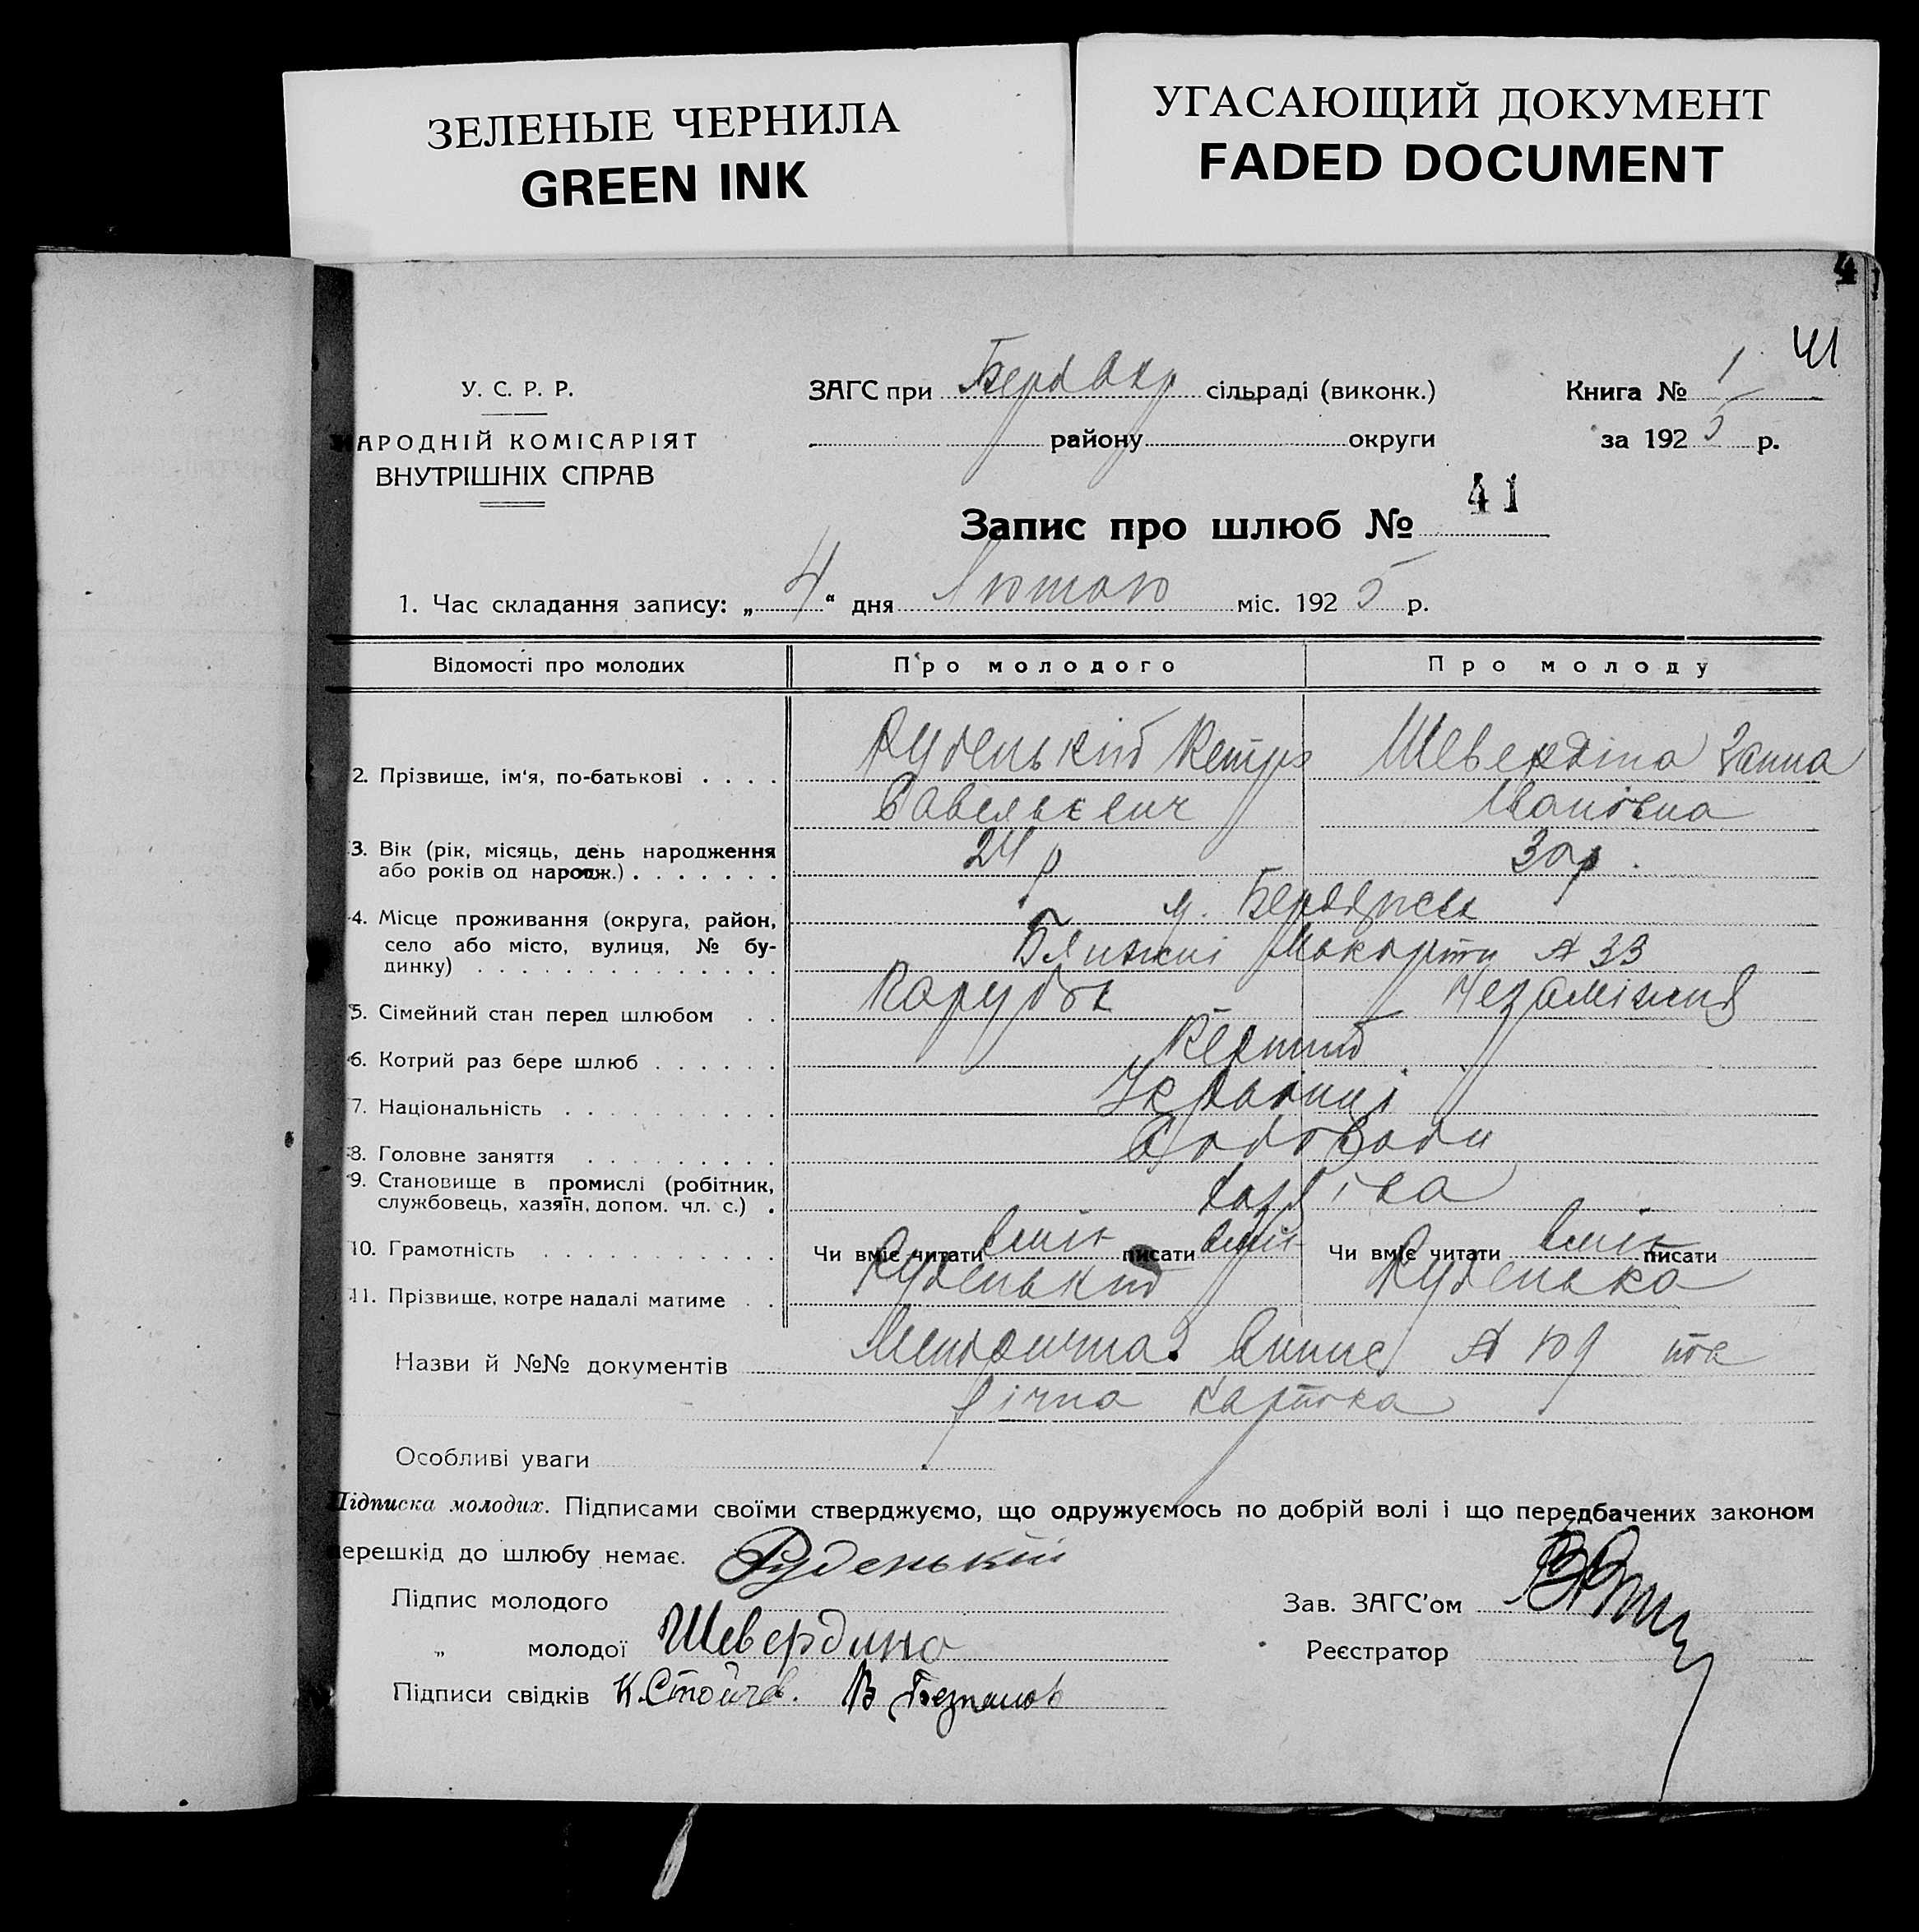 ЗЕЛЕНЫЕ ЧЕРНИЛА
GREEN INK
УГАСАЮЩИЙ ДОКУМЕНТ
FADED DOCUMENT
4
41
У. С. Р. Р.
НАРОДНІЙ КОМІСАРІЯТ
ВНУТРІШНІХ СПРАВ
ЗАГС при Берд Окр сільраді (виконк.)
району округи
Книга № 1
за 1925 р.
Запис про шлюб № 41
1. Час складання запису: „4“ дня Лютого міс. 1925 р.
Відомості про молодих Про молодого Про молоду
2. Прізвище, ім'я, по-батькові . . . . Руденький Петро Шевердіна Ганна
Савельевич Ивановна
3. Вік (рік, місяць, день народження
або років од народж.) . . . . . . . 24 р 30 р.
4. Місце проживання (округа, район,
село або місто, вулиця, № бу-
динку) . . . . . . . . . . . . . . м. Бердянськ
Ближні Макорти № 33
5. Сімейний стан перед шлюбом . . Парубок Незаміжня
6. Котрий раз бере шлюб . . . . . . Перший
7. Національність . . . . . . . . . . Українці
8. Головне заняття . . . . . . . . .
9. Становище в промислі (робітник,
службовець, хазяїн, допом. чл. с.) .
10. Грамотність . . . . . . . . . . . Чи вміє читати вміє писати вміє Чи вміє читати вміє писати
11. Прізвище, котре надалі матиме . . Руденький Руденька
Назви й №№ документів Метрична випис № 109
картка
Особливі уваги
Підписка молодих. Підписами своїми стверджуємо, що одружуємось по добрій волі і що передбачених законом
перешкід до шлюбу немає.
Підпис молодого Руденький
„ молодої Шевердина
Підписи свідків К. Стойчев.
Зав. ЗАГС'ом
Реєстратор